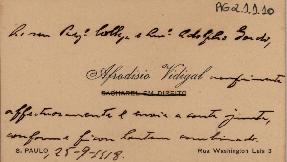 AG2.1.1.10
Ao seu Prez.º Collega e Am.º Adolpho Gordo,
Afrodisio Vidigal cumprimenta
BACHAREL EM DIREITO
affectuosamente e envia a conta junta,
conforme ficou hontem combinado.
S. PAULO, 25-9-918.
Rua Washington Luis 3